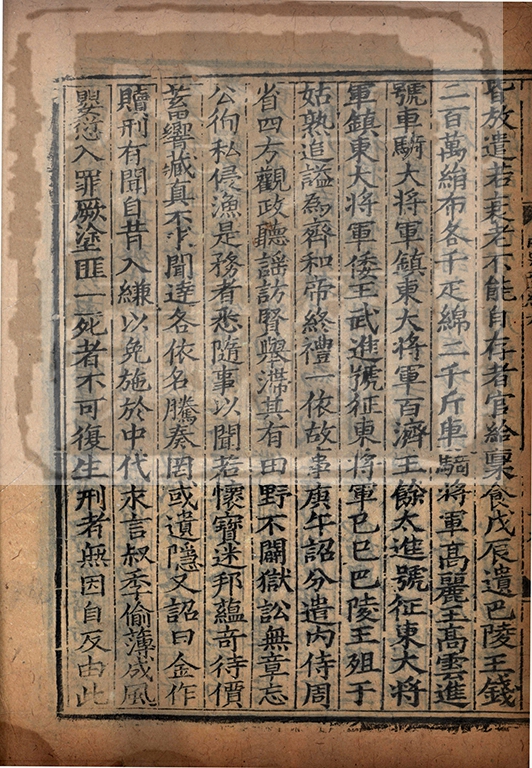 皆放遣若衰老不能自存者官給稟食戊辰遣巴陵王錢
二百萬絹布各千疋綿二千斤車騎將軍高麗王高雲進
號車騎大將軍鎮東大將軍百濟王餘太進號征東大將
軍鎮東大將軍倭王武進號征東將軍己巳巴陵王殂于
姑孰追謚為齊和帝終禮一依故事庚午詔分遣內侍周
省四方觀政聽謠訪賢舉滯其有田野不闢獄訟無章忘
公徇私侵漁是務者悉隨事以聞若懷寶迷邦蘊奇待價
蓄響藏真不求聞達各依名騰奏罔或遺隱又詔曰金作
贖刑有聞自昔入縑以免施於中代末言叔季偷薄成風
嬰愆入罪厥塗匪一死者不可復生刑者無因自反由此